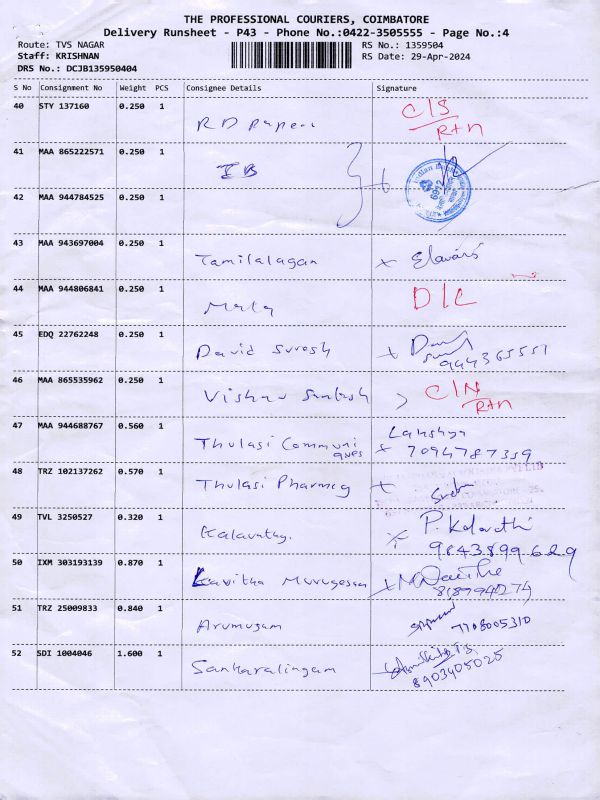 THE PROFESSIONAL COURIERS, COIMBATORE
Delivery Runsheet - P43 - Phone No.:0422-3505555 - Page No.:4
Route: TVS NAGAR
Staff: KRISHNAN
DRS No.: DCJB135950404
RS No.: 1359504
RS Date: 29-Apr-2024
S No Consignment No Weight PCS Consignee Details Signature
40 STY 137160 0.250 1 RD papers C/S
Rtn
41 MAA 865222571 0.250 1 IB
42 MAA 944784525 0.250 1
43 MAA 943697004 0.250 1 Tamilalagan x
44 MAA 944806841 0.250 1 Mala D/C
45 EDQ 22762248 0.250 1 David Suresh x
944365551
46 MAA 865535962 0.250 1 Vishnu Santosh C/N
Rtn
47 MAA 944688767 0.560 1 Thulasi Communi Lakshya
x 7094787359
48 TRZ 102137262 0.570 1 Thulasi Pharmcy
49 TVL 3250527 0.320 1 Kalavathy. x P. Kalavathi
9843899629
50 IXM 303193139 0.870 1 Kavitha Murugesan x
51 TRZ 25009833 0.840 1 Arumugam
7708005310
52 SDI 1004046 1.600 1 Sankaralingam
8903405025